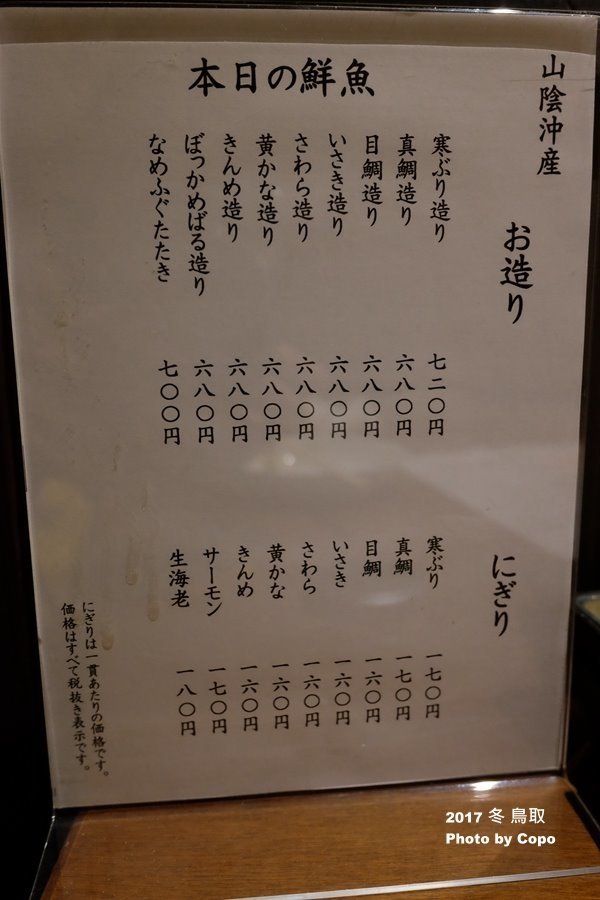 本日の鮮魚
山陰沖産
お造り
寒ぶり造り 七二〇円
真鯛造り 六八〇円
目鯛造り 六八〇円
いさき造り 六八〇円
さわら造り 六八〇円
黄かな造り 六八〇円
きんめ造り 六八〇円
ぼっかめばる造り 六八〇円
なめふぐたたき 七〇〇円
にぎり
寒ぶり 一七〇円
真鯛 一七〇円
目鯛 一六〇円
いさき 一六〇円
さわら 一六〇円
黄かな 一六〇円
きんめ 一六〇円
サーモン 一七〇円
生海老 一八〇円
にぎりは一貫あたりの価格です。
価格はすべて税抜き表示です。
2017 冬 鳥取
Photo by Copo